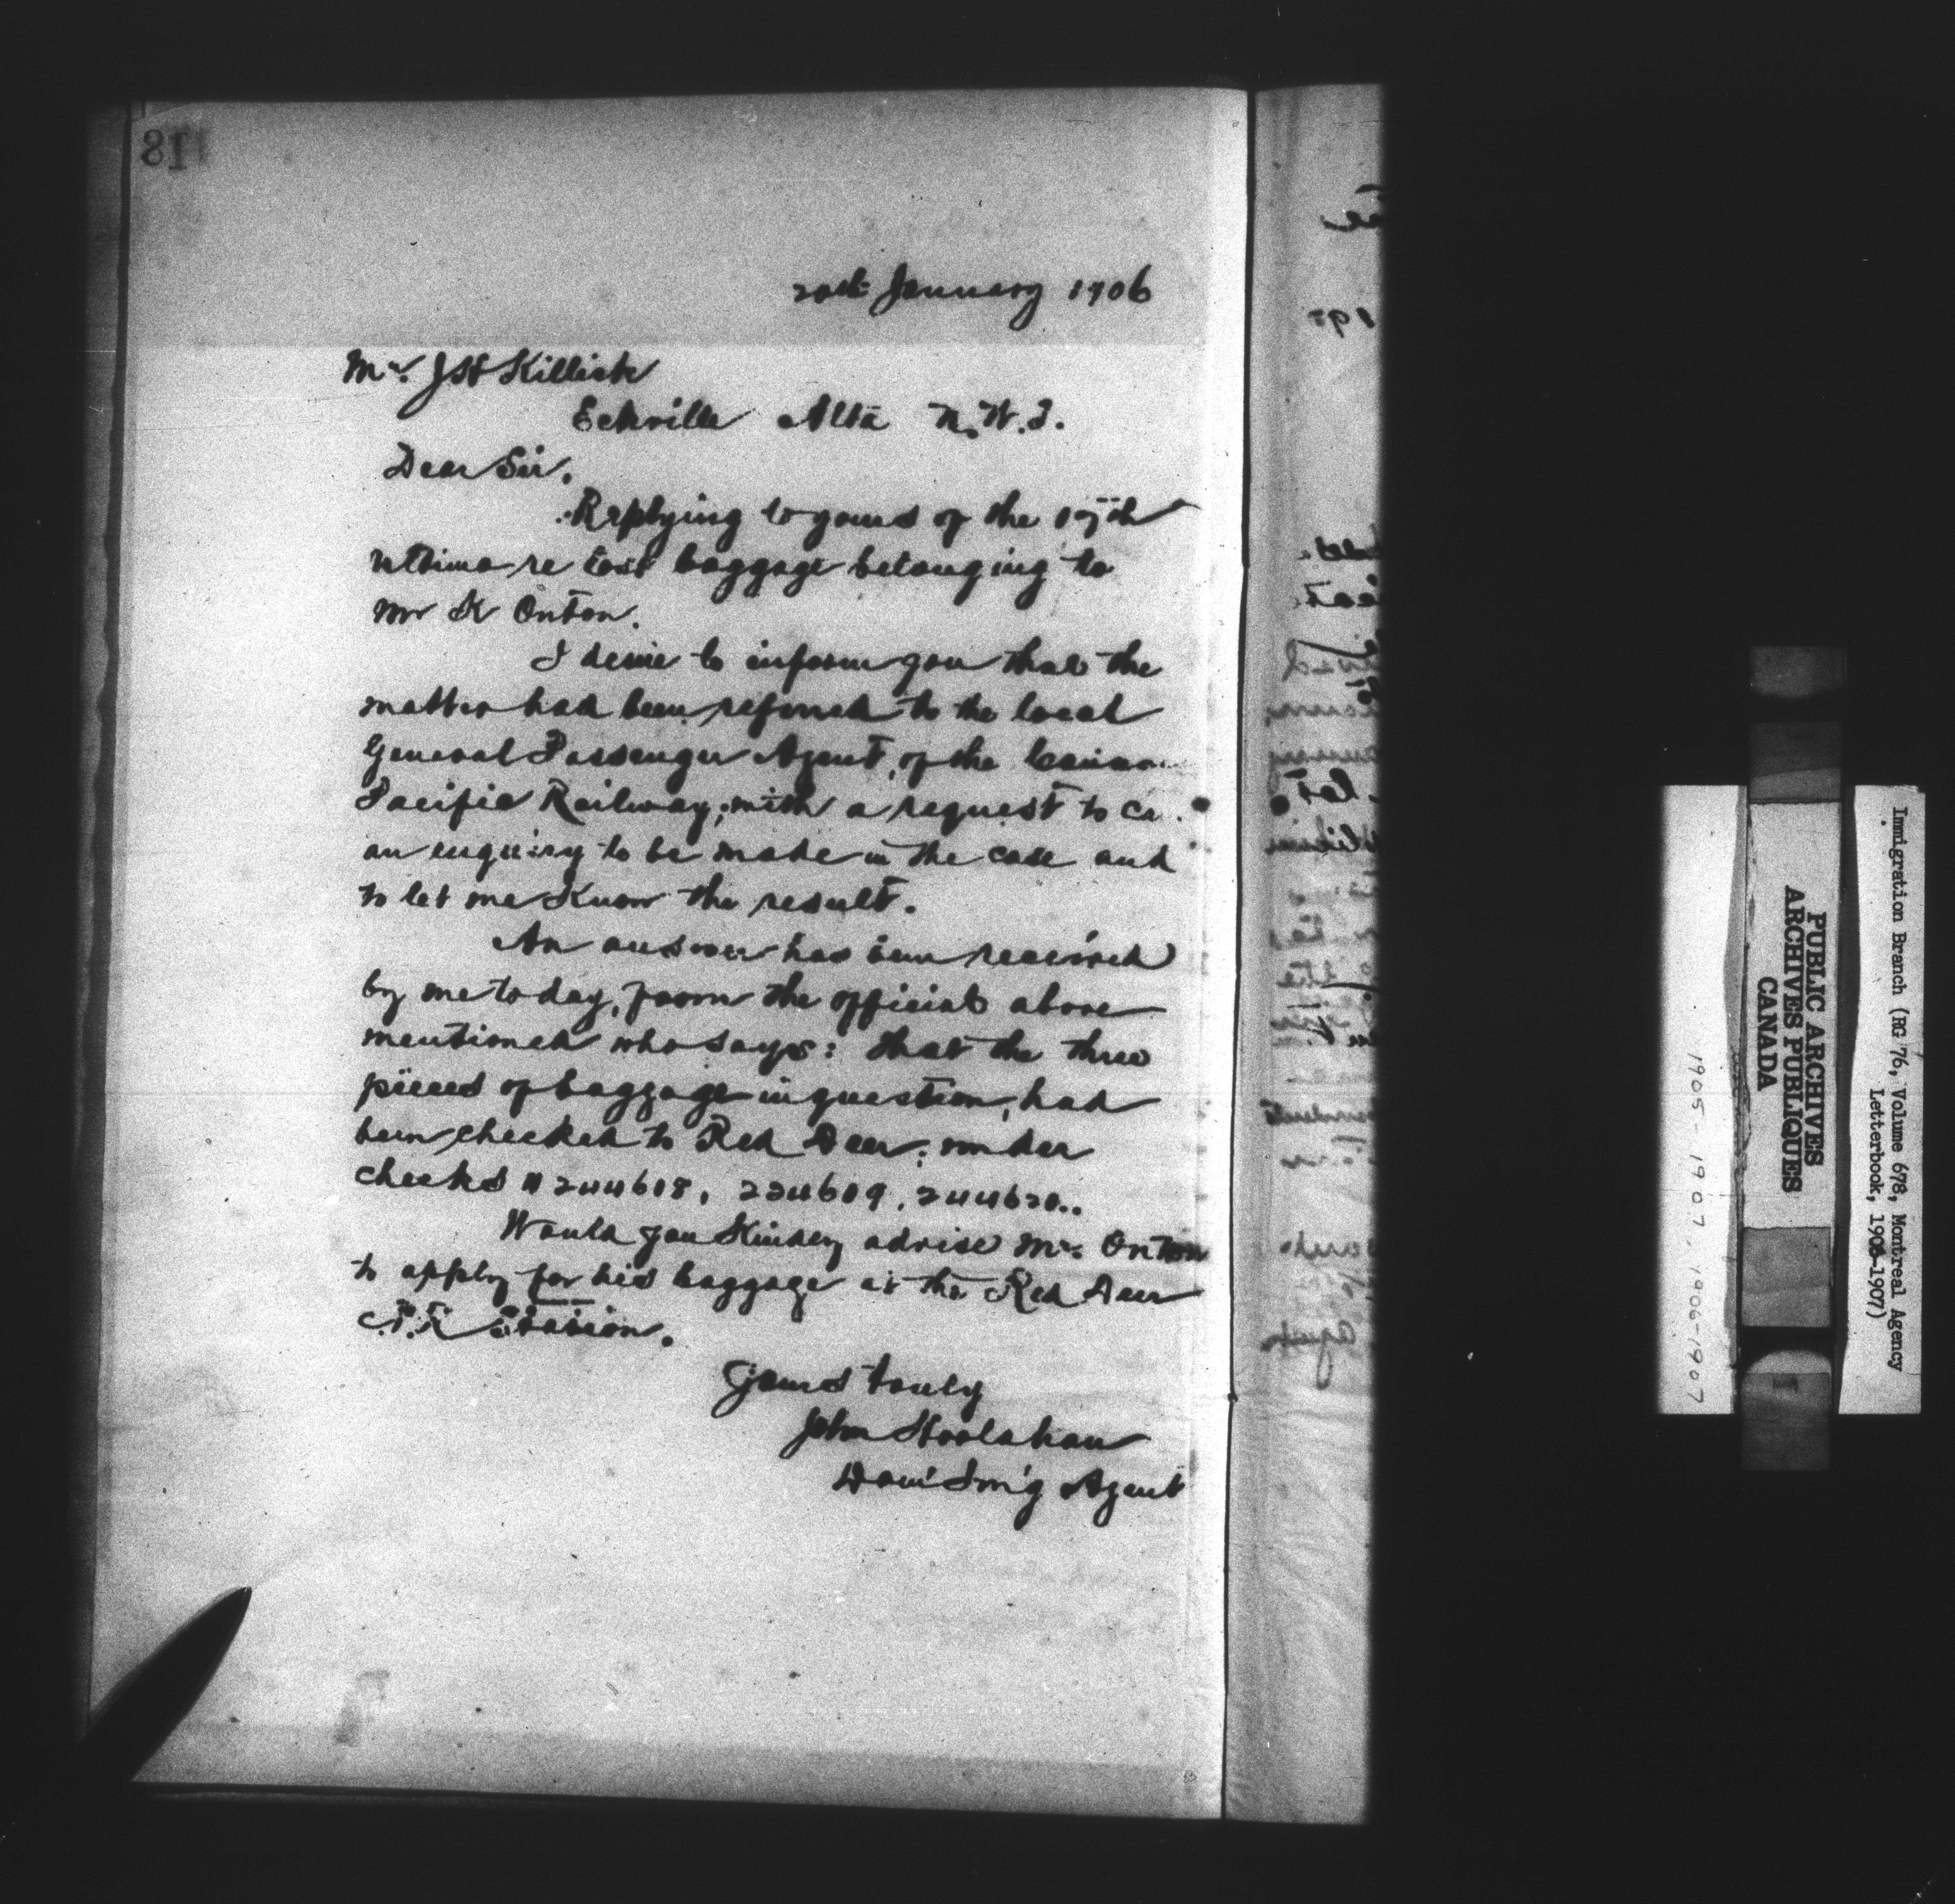 20th January 1906
Mr. J H Killick
Eckville Alta N.W.T.
Dear Sir.
Replying to yours of the 17th
ultimo re lost baggage belonging to
Mr K Onton.
I desire to inform you that the
matter had been referred to the local
General Passenger Agent, of the
Pacific Railway; with a request to
an enquiry to be made in the case and
to let me Know the result.
An answer has been received
by me today, from the official above
mentioned who says: that the three
pieces of baggage in question, had
been checked to Red Deer; under
checks # 244618, 244619, 244620..
Would you Kindly advise Mr. Onton
to apply for his baggage at the Red Deer
C.P.R Station.
Yours truly
John Hoolahan
Dom' Im'g Agent
PUBLIC ARCHIVES
ARCHIVES PUBLIQUES
CANADA
Immigration Branch (RG 76, Volume 678, Montreal Agency
Letterbook, 1905-1907)
1905-1907, 1906-1907